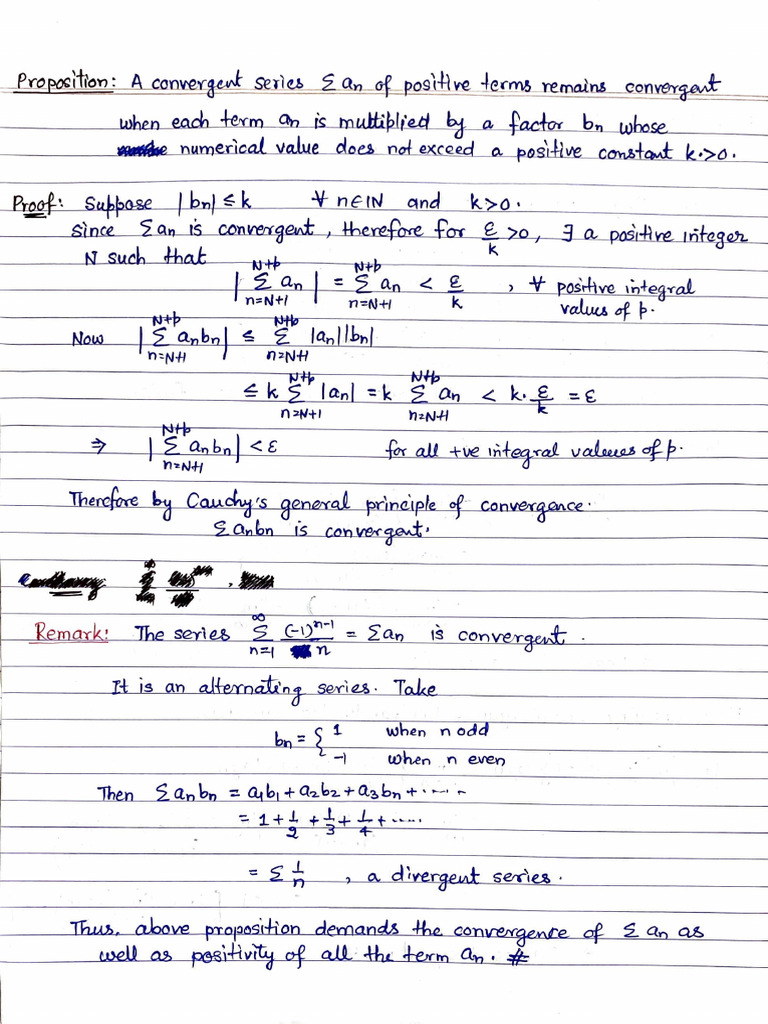 Proposition: A convergent series Σ an of positive terms remains convergent
when each term an is multiplied by a factor bn whose
numerical value does not exceed a positive constant k.>0.
Proof: Suppose |bn| ≤ k ∀ n∈IN and k>0.
since Σan is convergent, therefore for ε/k >0, ∃ a positive integer
N such that
|Σ_{n=N+1}^{N+p} an| = Σ_{n=N+1}^{N+p} an < ε/k , ∀ positive integral
values of p.
Now |Σ_{n=N+1}^{N+p} anbn| ≤ Σ_{n=N+1}^{N+p} |an||bn|
≤ k Σ_{n=N+1}^{N+p} |an| = k Σ_{n=N+1}^{N+p} an < k. ε/k = ε
⇒ |Σ_{n=N+1}^{N+p} anbn| < ε for all +ve integral values of p.
Therefore by Cauchy's general principle of convergence.
Σanbn is convergent.
Remark: The series Σ_{n=1}^{∞} (-1)^{n-1}/n = Σan is convergent.
It is an alternating series. Take
bn = { 1 when n odd
-1 when n even
Then Σanbn = a1b1 + a2b2 + a3bn + .....
= 1 + 1/2 + 1/3 + 1/4 + .....
= Σ 1/n , a divergent series.
Thus, above proposition demands the convergence of Σ an as
well as positivity of all the term an. #